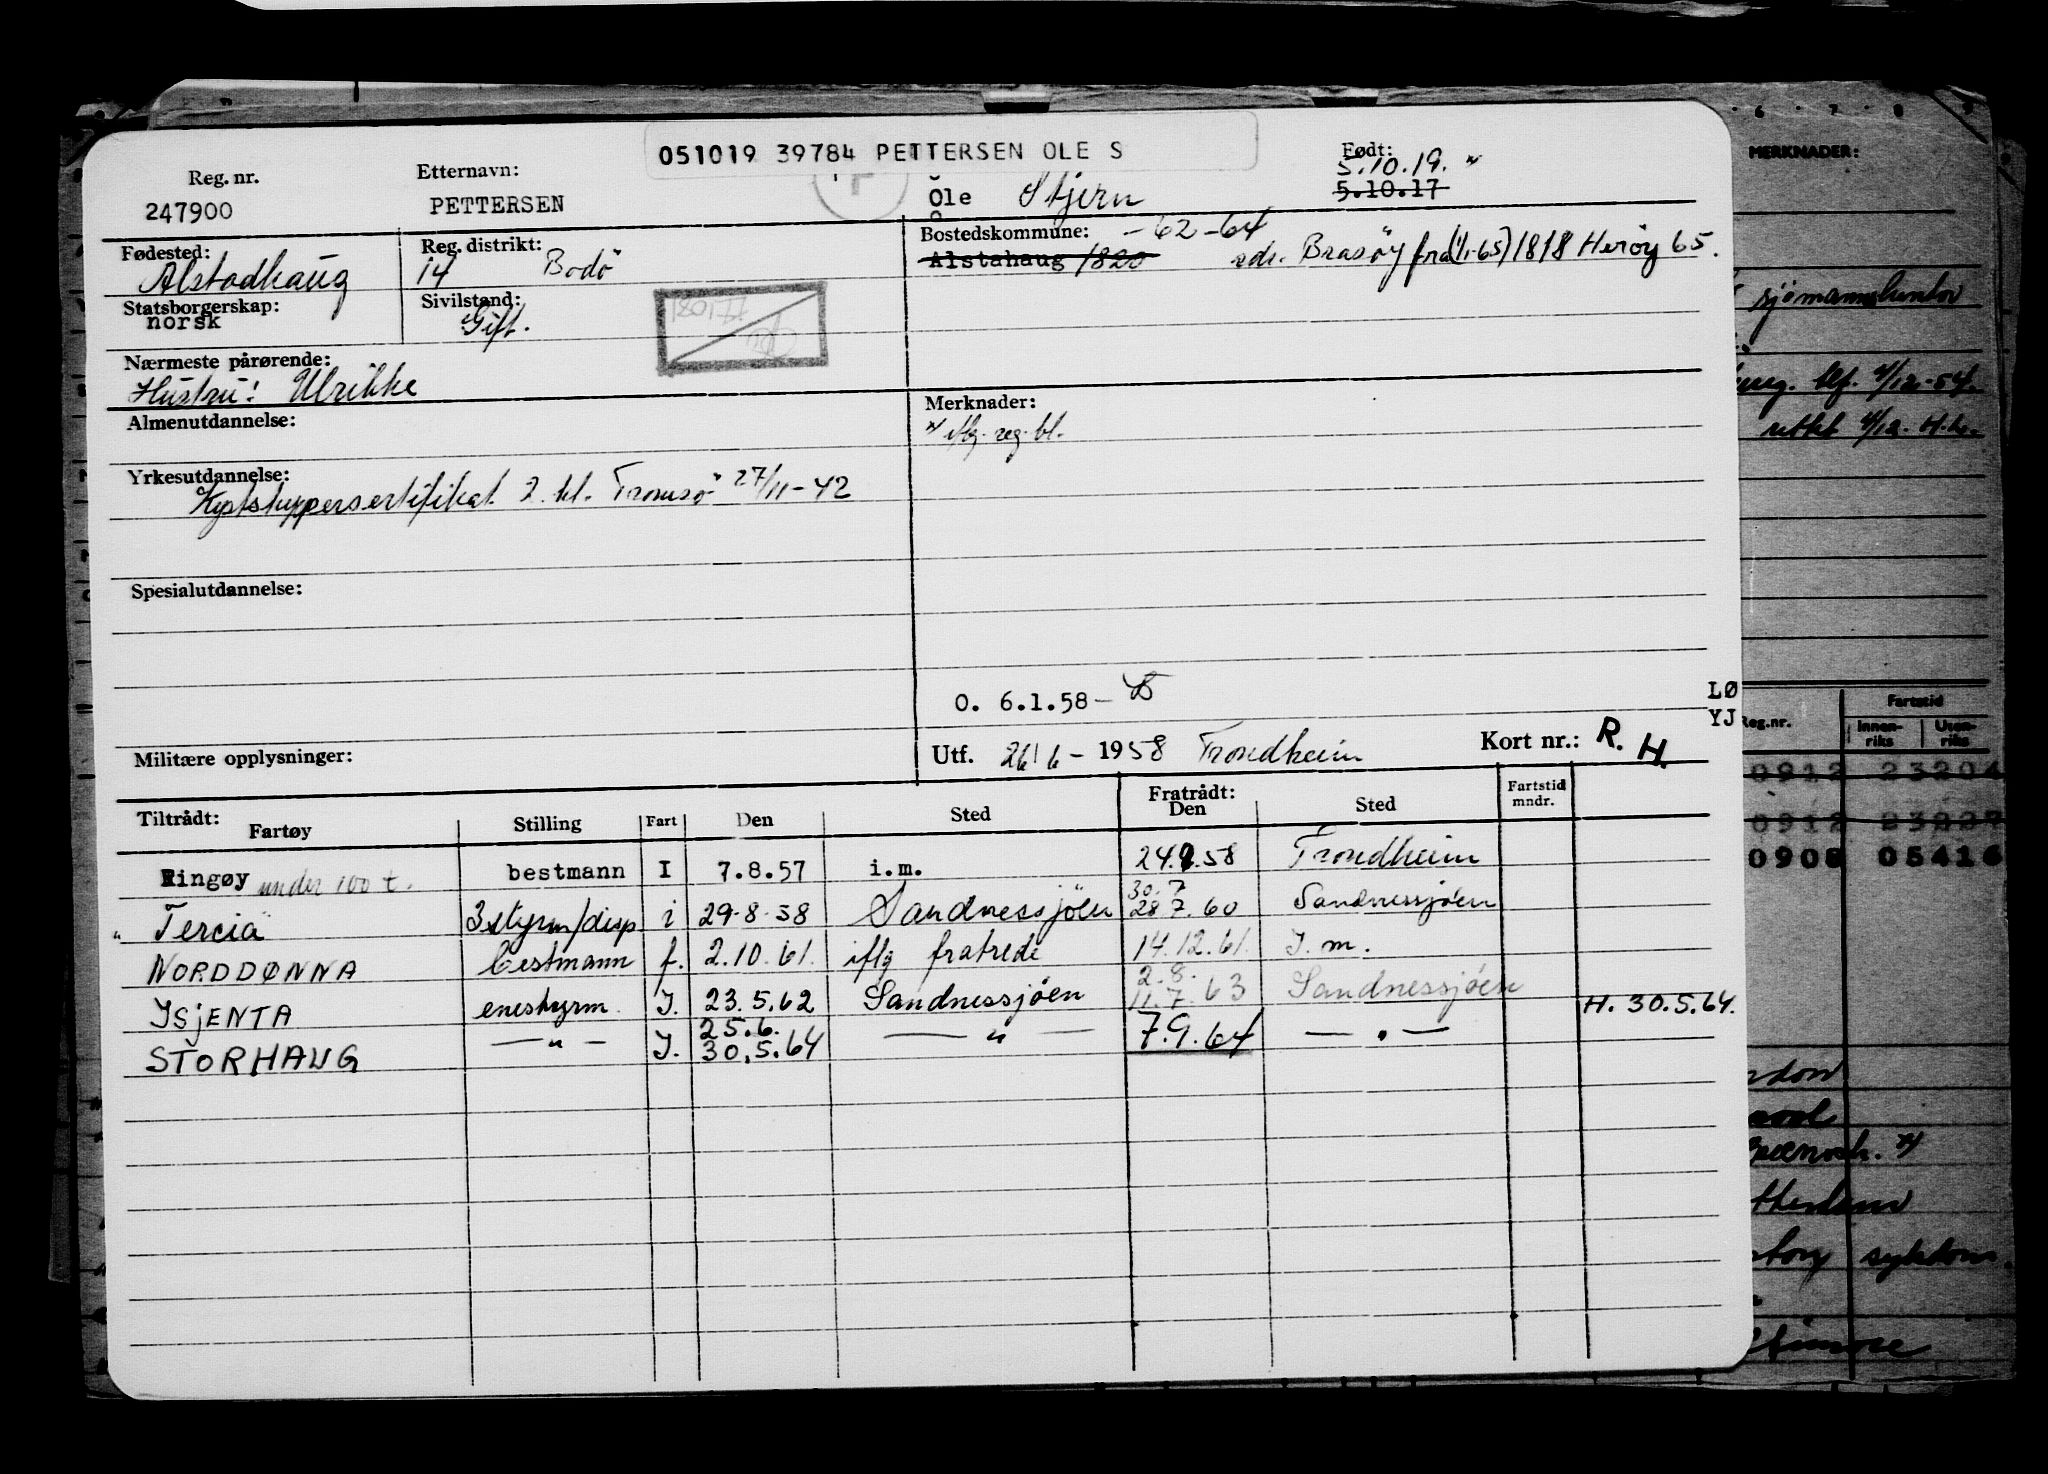 051019 39784 PETTERSEN OLE S
Reg. nr.
247900
Etternavn:
PETTERSEN
Ole Stjern
Født:
5.10.19. x/
5.10.17
Fødested:
Alstadhaug
Reg. distrikt:
14 Bodö
Bostedskommune: -62-64
Alstahaug 1820 adr. Brasöy fra (1/1-65) 1818 Heröy 65.
Statsborgerskap:
norsk
Sivilstand:
Gift.
Nærmeste pårørende:
Hustru: Ulrikke
Almenutdannelse:
Merknader:
x/ iflg. reg. bl.
Yrkesutdannelse:
Kystskippersertifikat 2. kl. Tromsö 27/11-42
Spesialutdannelse:
O. 6.1.58-
LØ
YJ
Militære opplysninger:
Utf. 26/6-1958 Trondheim
Kort nr.: R. H.
Tiltrådt:
Fartøy Stilling Fart Den Sted
Fratrådt:
Den Sted
Fartstid
mndr.
Ringøy under 100 t. bestmann I 7.8.57 i.m. 24.2.58 Trondheim
" Tercia 3styrm/disp i 29-8-58 Sandnessjöen 30.7 28.7.60 Sandnessjöen
NORDDØNNA bestmann f. 2.10.61. iflg fratrede 14.12.61. I.m.
ISJENTA enestyrm. I. 23.5.62 Sandnessjöen 2.8. 11.7.63 Sandnessjöen H. 30.5.64.
STORHAUG — " — I. 25.6. 30.5.64 — " — 7.9.64 — " —
6 7 8 9
MERKNADER:
4/12-54.
rettet 4/12. H.L.
Reg.nr.
Fartstid
Innen-
riks
Uten-
riks
0912 23204
0912 23227
0908 05416